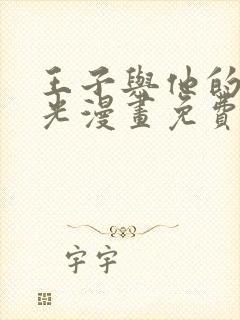 王子與他的
光漫畫免費
字字